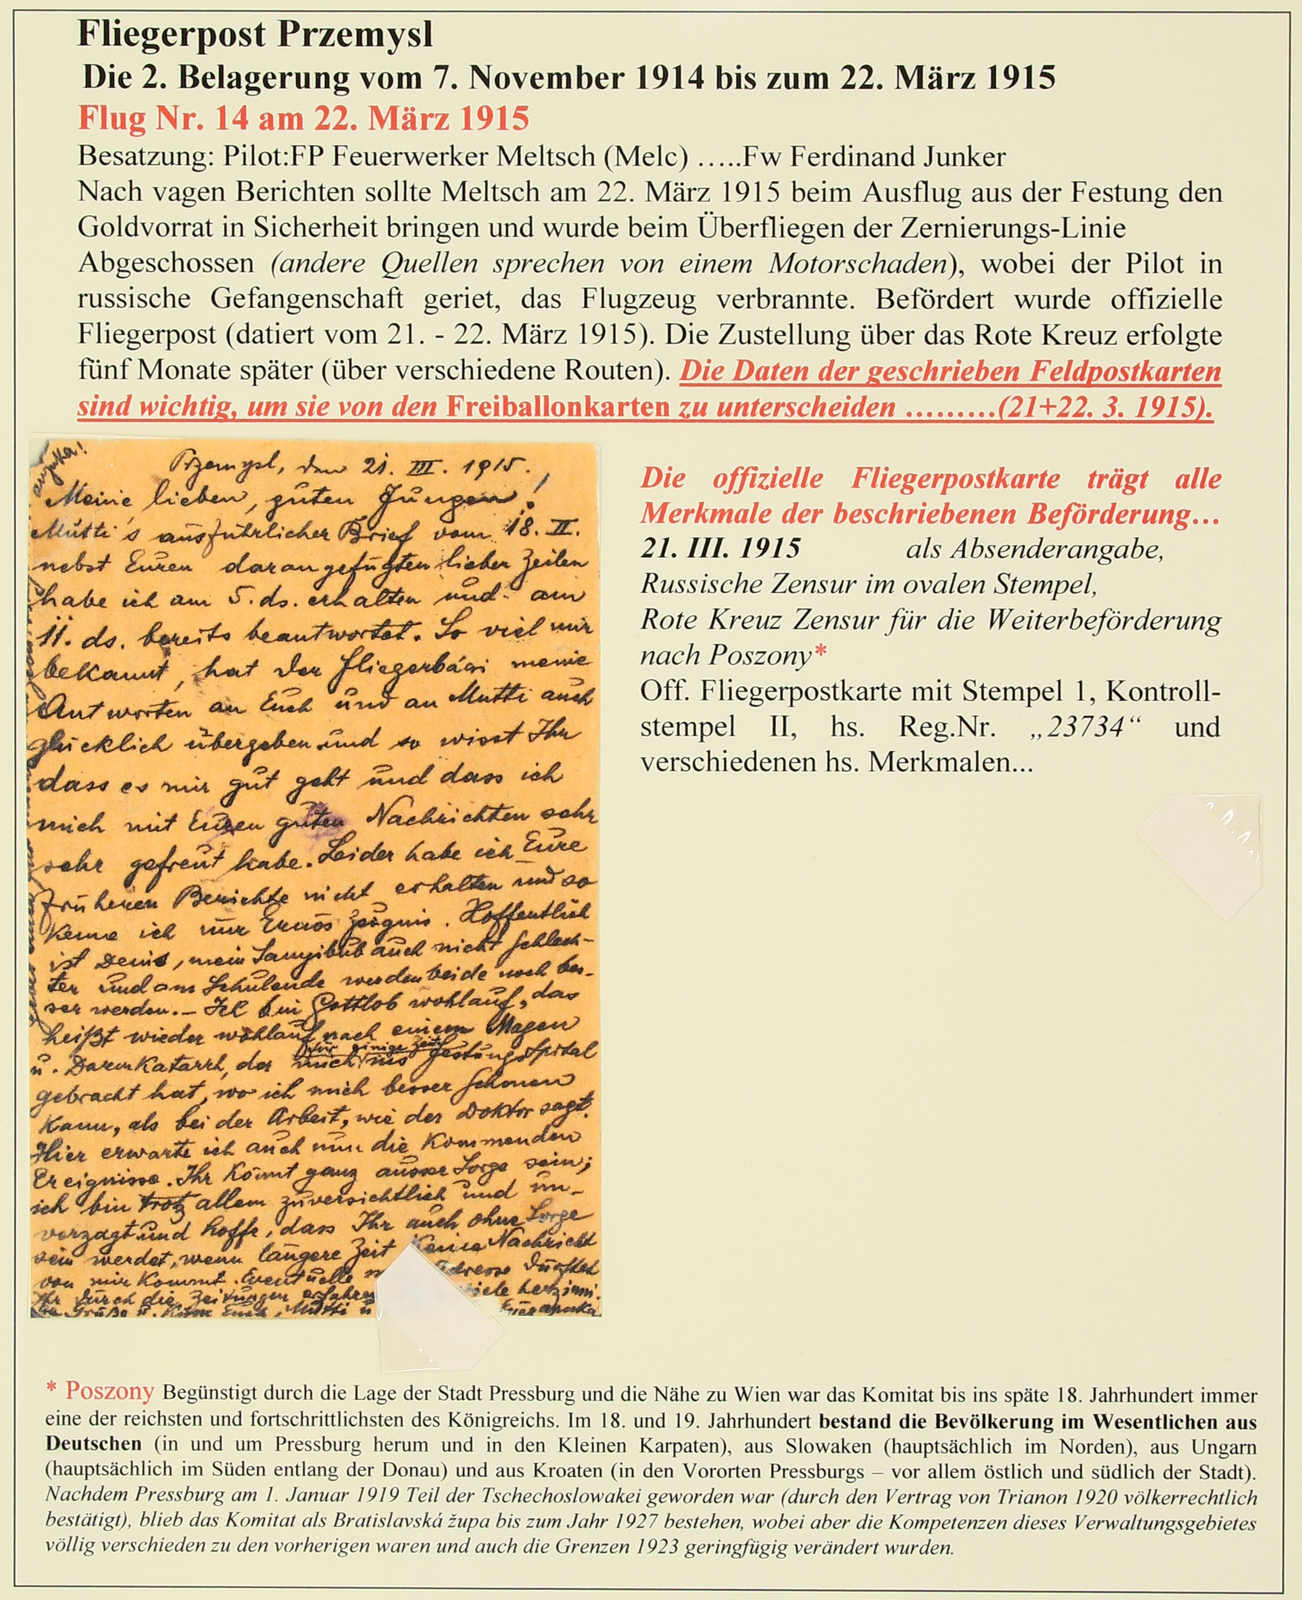 Fliegerpost Przemysl
Die 2. Belagerung vom 7. November 1914 bis zum 22. März 1915
Flug Nr. 14 am 22. März 1915
Besatzung: Pilot:FP Feuerwerker Meltsch (Melc) …..Fw Ferdinand Junker
Nach vagen Berichten sollte Meltsch am 22. März 1915 beim Ausflug aus der Festung den
Goldvorrat in Sicherheit bringen und wurde beim Überfliegen der Zernierungs-Linie
Abgeschossen (andere Quellen sprechen von einem Motorschaden), wobei der Pilot in
russische Gefangenschaft geriet, das Flugzeug verbrannte. Befördert wurde offizielle
Fliegerpost (datiert vom 21. - 22. März 1915). Die Zustellung über das Rote Kreuz erfolgte
fünf Monate später (über verschiedene Routen). Die Daten der geschrieben Feldpostkarten
sind wichtig, um sie von den Freiballonkarten zu unterscheiden ………(21+22. 3. 1915).
Przemysl, den 21. III. 1915.
Meine lieben, guten Jungen!
Mutti's ausführlicher Brief vom 18. II.
nebst Euren darangefügten lieber Zeilen
habe ich am 5. ds. erhalten und am
11. ds. bereits beantwortet. So viel mir
bekannt, hat der Fliegerbácsi meine
Antworten an Euch und an Mutti auch
glücklich übergeben und so wisst Ihr
dass es mir gut geht und dass ich
mich mit Euren guten Nachrichten sehr
sehr gefreut habe. Leider habe ich Eure
früheren Berichte nicht erhalten und so
kenne ich nur Ernös Zeugnis. Hoffentlich
ist Denis, mein auch nicht schlech-
ter und am Schulende werden beide noch bes-
ser werden. – Ich bin Gottlob wohlauf, das
heißt wieder wohlauf nach einem Magen
u. Darmkatarrh, der mich für einige Zeit ins Festungsspital
gebracht hat, wo ich mich besser schonen
kann, als bei der Arbeit, wie der Doktor sagt.
Hier erwarte ich auch nun die kommenden
Ereignisse. Ihr könnt ganz ausser Sorge sein;
ich bin trotz allem zuversichtlich und un-
verzagt und hoffe, dass Ihr auch ohne Sorge
sein werdet, wenn längere Zeit keine Nachricht
von mir kommt. Eventuelle Adresse dürftet
Ihr durch die Zeitungen erfahren viele herzinni.
Grüße u. Küsse Euch, Mutti
Die offizielle Fliegerpostkarte trägt alle
Merkmale der beschriebenen Beförderung…
21. III. 1915 als Absenderangabe,
Russische Zensur im ovalen Stempel,
Rote Kreuz Zensur für die Weiterbeförderung
nach Poszony*
Off. Fliegerpostkarte mit Stempel 1, Kontroll-
stempel II, hs. Reg.Nr. „23734“ und
verschiedenen hs. Merkmalen...
* Poszony Begünstigt durch die Lage der Stadt Pressburg und die Nähe zu Wien war das Komitat bis ins späte 18. Jahrhundert immer
eine der reichsten und fortschrittlichsten des Königreichs. Im 18. und 19. Jahrhundert bestand die Bevölkerung im Wesentlichen aus
Deutschen (in und um Pressburg herum und in den Kleinen Karpaten), aus Slowaken (hauptsächlich im Norden), aus Ungarn
(hauptsächlich im Süden entlang der Donau) und aus Kroaten (in den Vororten Pressburgs – vor allem östlich und südlich der Stadt).
Nachdem Pressburg am 1. Januar 1919 Teil der Tschechoslowakei geworden war (durch den Vertrag von Trianon 1920 völkerrechtlich
bestätigt), blieb das Komitat als Bratislavská župa bis zum Jahr 1927 bestehen, wobei aber die Kompetenzen dieses Verwaltungsgebietes
völlig verschieden zu den vorherigen waren und auch die Grenzen 1923 geringfügig verändert wurden.